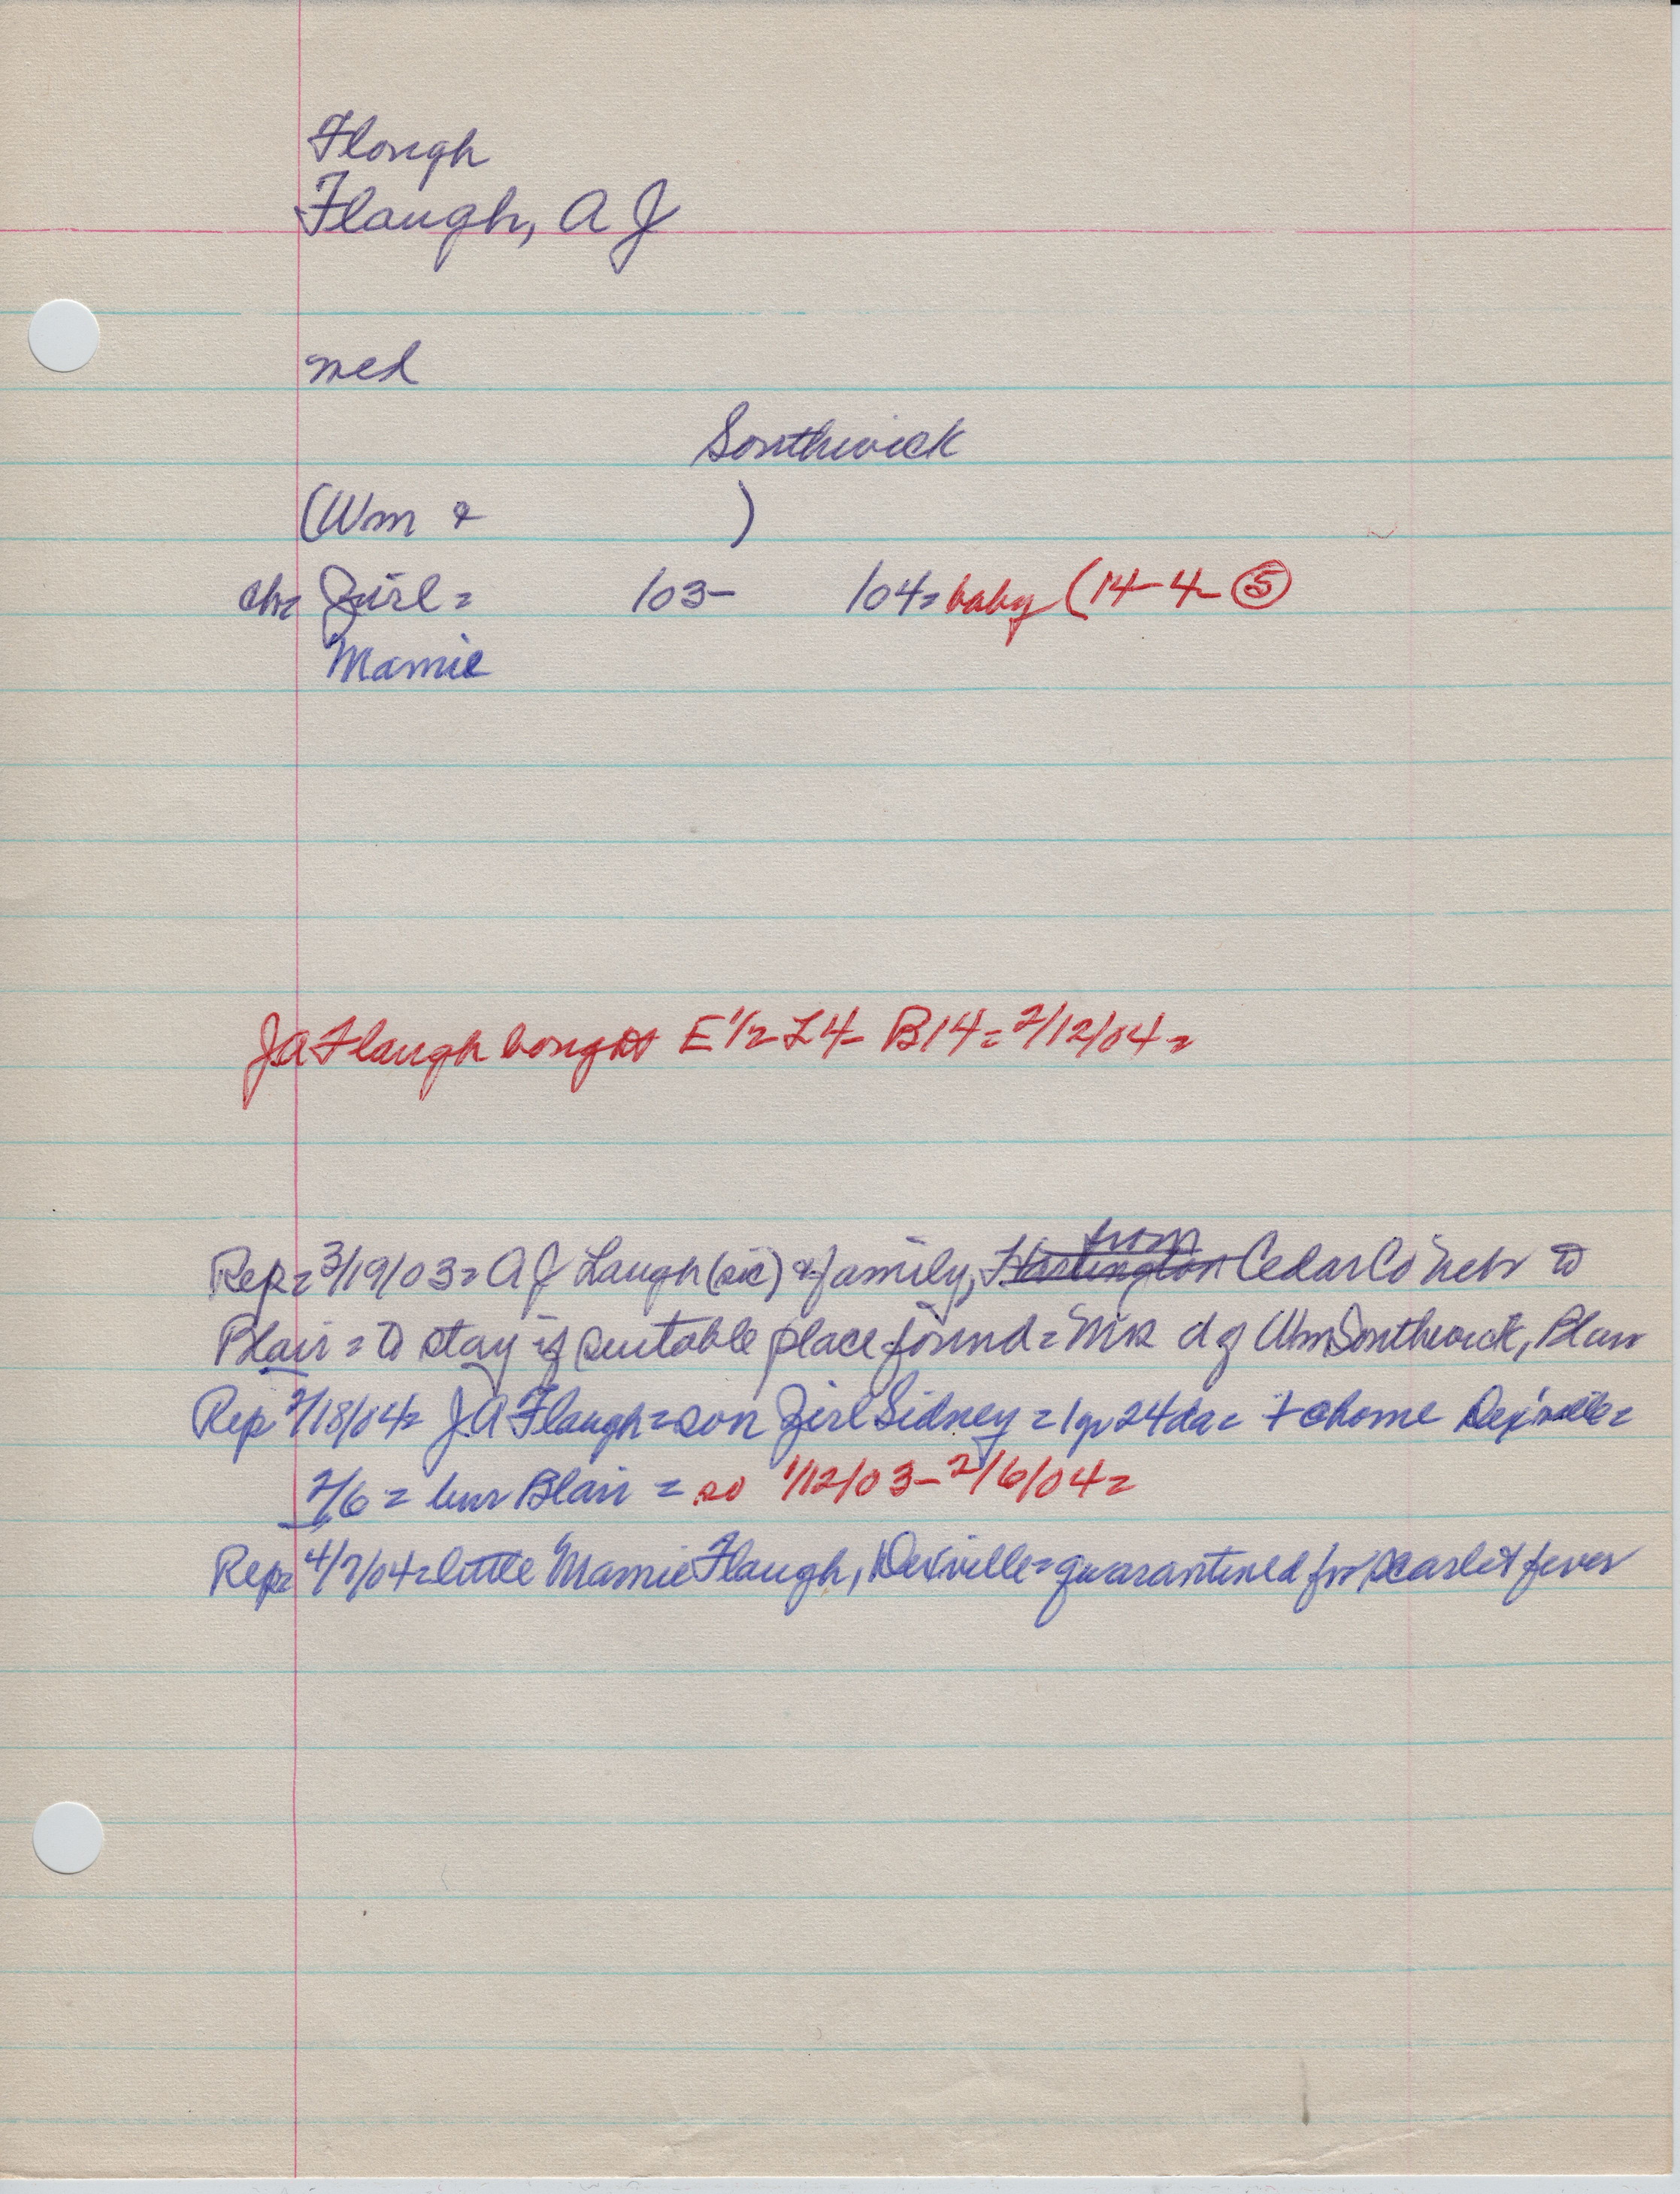 Flough
Flaugh, A J
med
Southwick
(Wm & )
ch= Jirl = /03- /04= baby (14-4- 5
Mamie
JA Flaugh bought E 1/2 L4- B14= 2/12/04=
from
Rep= 3/19/03= A J Laugh (sic) & family, Hartington Cedar Co Nebr to
Blair = to stay if suitable place found = Mrs d of Wm Southwick, Blair
Rep 2/18/04= J.A Flaugh = son Jirl Sidney = 1 yr 24 da = + @ home Dex'ville =
2/6 = bur Blair = so 1/12/03-2/6/04=
Rep= 4/7/04= little Mamie Flaugh, Dexville = quarantined for scarlet fever